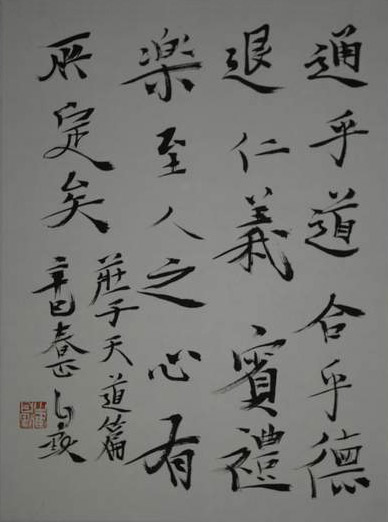 通乎道合乎德
退仁義賓禮
楽至人之心有
所定矣
莊子天道篇
辛巳春正